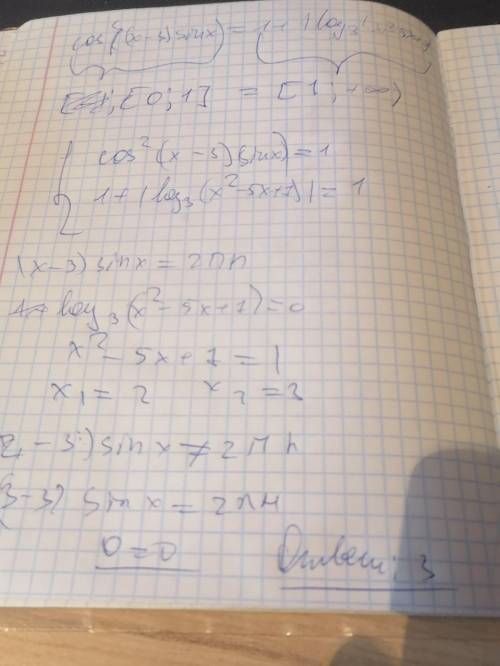 cos²((x-3)sinx) = 1 + |log₃(x²-5x+7)|
[0; 1] = [1; +∞)
cos²(x-3)sinx) = 1
1 + |log₃(x²-5x+7)| = 1
(x-3) sinx = 2πn
log₃(x²-5x+7) = 0
x²-5x+7 = 1
x₁ = 2 x₂ = 3
2-3) sin x ≠ 2πn
(3-3) sin x = 2πn
0 = 0
Ответ: 3